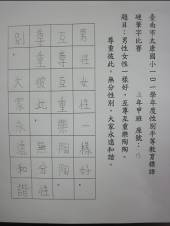 臺南市太康國小一○一學年度性別平等教育標語
硬筆字比賽
年甲班 座號：
題目：男性女性一樣好，互尊互重樂陶陶。
尊重彼此，無分性別，大家永遠和諧。
男性女性一樣好，
互尊互重樂陶陶。
尊重彼此，無分性
別，大家永遠和諧